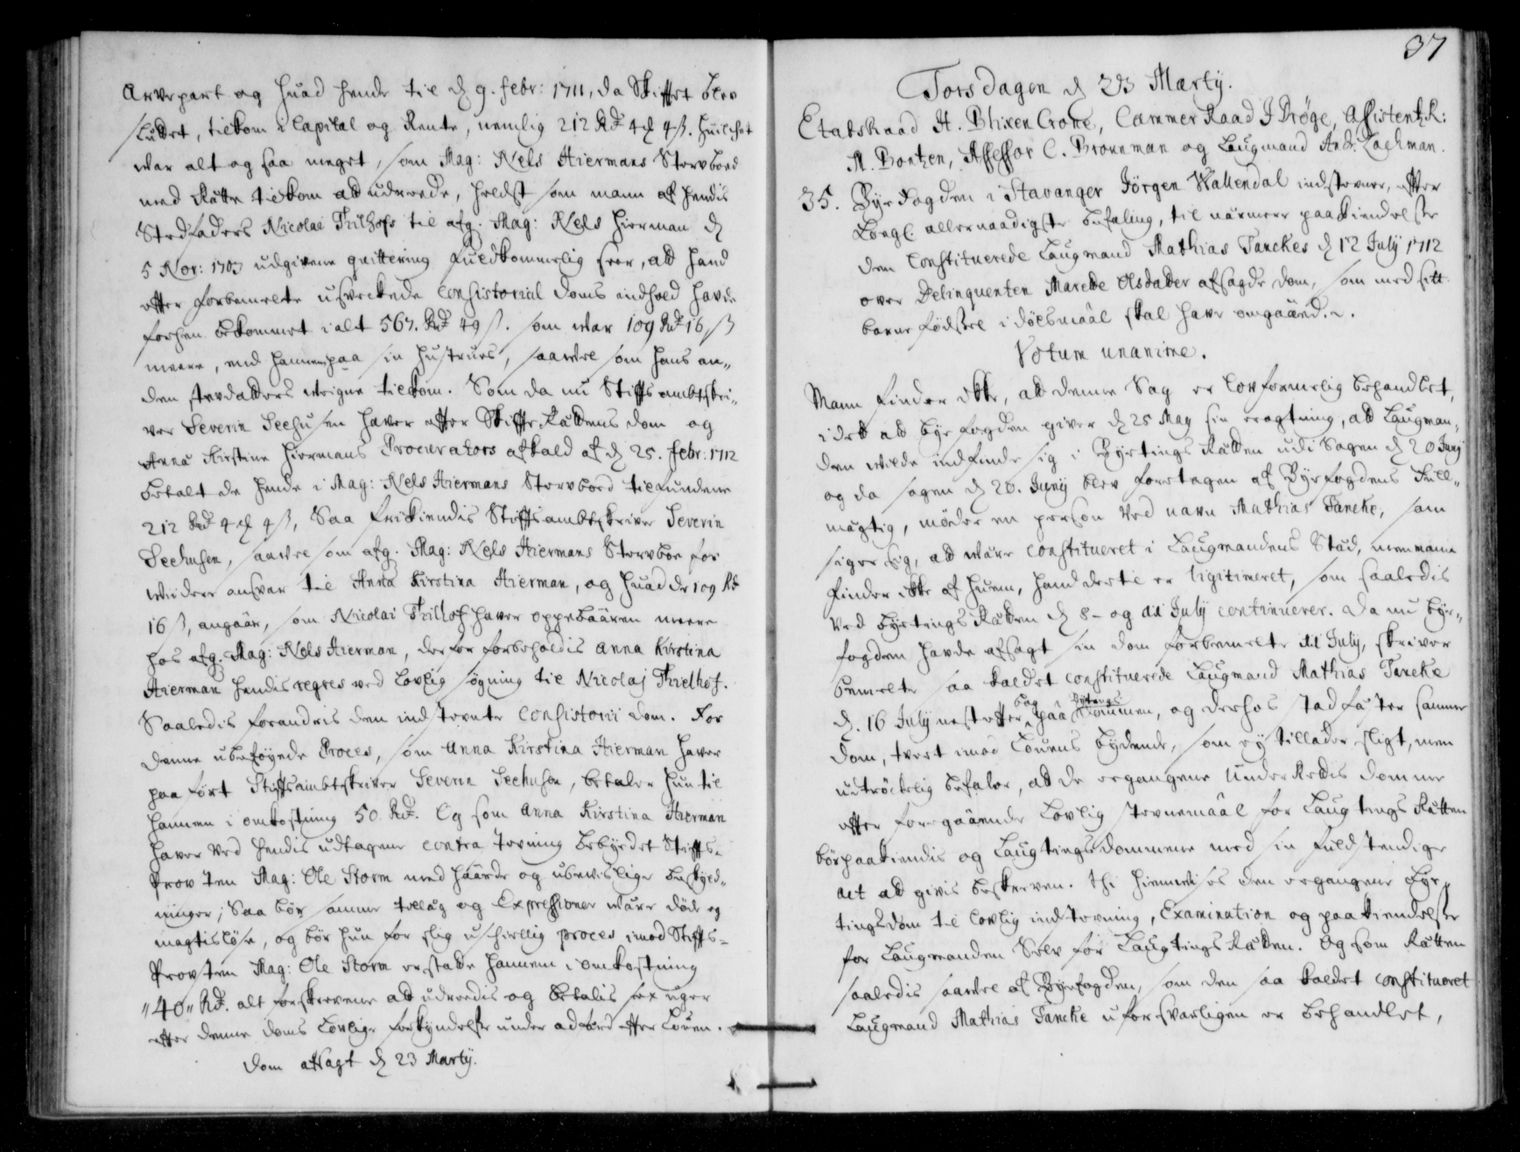 Arvepart og hvad hende til d 9. Febr: 1711, da Skiftet blev
sluttet, tilkom i Capital og Rente, nemlig 212 Rdr 4 ₰ 4 ß. huilchet
war alt og saa meget, som Mag: Nels Hiermans Stervboed
med Rætte tilkom at udreede, heldst som mann af hendis
Stedfaders Nicolai Thilhofs til afg. Mag: Nels Hierman d
5 Nov: 1703 udgivene qvittering fuldkommelig seer, at hand
efter forbemelte usvækkede Consistorial Doms indhold havde
forhen bekommet i alt 567. Rdr 49 ß. som war 109 Rdr 16 ß
meere, end hannem paa sin Hustrues, saavel som hans an„
den steddatters weigne tilkom. Som da nu Stifts ambtskri„
ver Severin Seehusen haver efter Skifte Rættens dom og
Anna Kirstine Hiermans Procurators afkald af d 25. Febr: 1712
betalt de hende i Mag: Nels Hiermans Stervboed tilfundene
212 Rdr 4 ₰ 4 ß, Saa frikiendis Stiftsambtskriver Severin
Seehusen, saavel som afg. Mag: Nels Hiermans Stervboe for
widere ansvar til Anna Kirstina Hierman, og hvad de 109 Rdr
16 ß, angaar, som Nicolai Thillhof haver oppebaaren meere
hos afg. Mag: Nels Hierman, derfor forbeholdis Anna Kirstina
Hierman hendis regres ved lovlig søgning til Nicolaj Thielhof.
Saaledis forandris den indstevnte Consistorii dom. For
denne ubeføyede Proces, som Anna Kirstina Hierman haver
paa ført Stiftsambtskriver Severin Seehusen, betaler hun til
hannem i omkostning 50. Rdr. Og som Anna Kirstina Hierman
haver ved hendis udtagene contra stevning bebyrdet Stifts-
Provsten Mag: Ole Storm med haarde og ubevislige beskyld„
ninger, Saa bør samme tillæg og Expressioner være døde og
magtisløse, og bør hun for slig uskiellig proces imod Stifts-
Provsten Mag: Ole Storm erstatte hannem i omkostning
„40„ Rdr. alt forskrevene at udreedis og betalis sex uger
efter denne doms Lovlige forkyndelse under adfærd efter Loven.
Dom afsagt d 23 Martÿ.
37
Torsdagen d 23 Martÿ.
Etatsraad H. Blixencrone, Cammer Raad J Brøge, Assistentz R:
M. Bontzen, Assessor C. Brounman og Laugmand Andr: Lachman.
35. Byefogden i Stavanger Jörgen Wallendal indstevner, efter
Kongl. allernaadigste befaling, til nærmere paakiendelse
den Constituerede Laugmand Mathias Tanckes d 12 July 1712
over Delinquenten Marete Olsdatter afsagde dom, som med sitt
barns fødsel i dølsmaal skal have omgaaed.
Votum unanime.
Mann finder ikke, at denne Sag er lovformelig behandlet,
i det at Byefogden giver d 25 May sin eragtning, at Laugman„
den wilde indfinde sig i Byetings Rætten udi Sagen d 20 Juny
og da sagen d 20. Juny blev foretagen af Byefogdens Full„
mægtig, møder en person ved navn Mathias Tancke, som
siger sig, at være Constitueret i Laugmandens Stæd, men mann
finder ikke af hvem, hand dertil er ligitimeret, som saaledis
ved byetings Rætten d 8- og 11 July continuerer. Da nu Bye„
fogden havde afsagt sin dom forbemelte 11 July, skriver
bemelte saa kaldet Constituerede Laugmand Mathias Tancke
d. 16 July nest efter bag paa Bytings Dommen, og derhos stadfæster samme
dom, tvert imod Lovens bydende, som ey tillader sligt, men
udtrøckelig befaler, at de ergangene Under Rettis domme
efter foregaaende Lovlig stevnemaal for Laugtings Rætten
bør paakiendis og Laugtingsdommene med sin fuldstendige
act at givis beskreven. thi hiemvises den ergangene Bye„
tingsdom til lovlig indstevning, Examination og paakiendelse
for Laugmanden Selv for Laugtings Rætten. Og som Rætten
saaledis saavel af Byefogden, som den saa kaldet Constitueret
Laugmand Mathias Tancke uforsvarligen er behandlet,